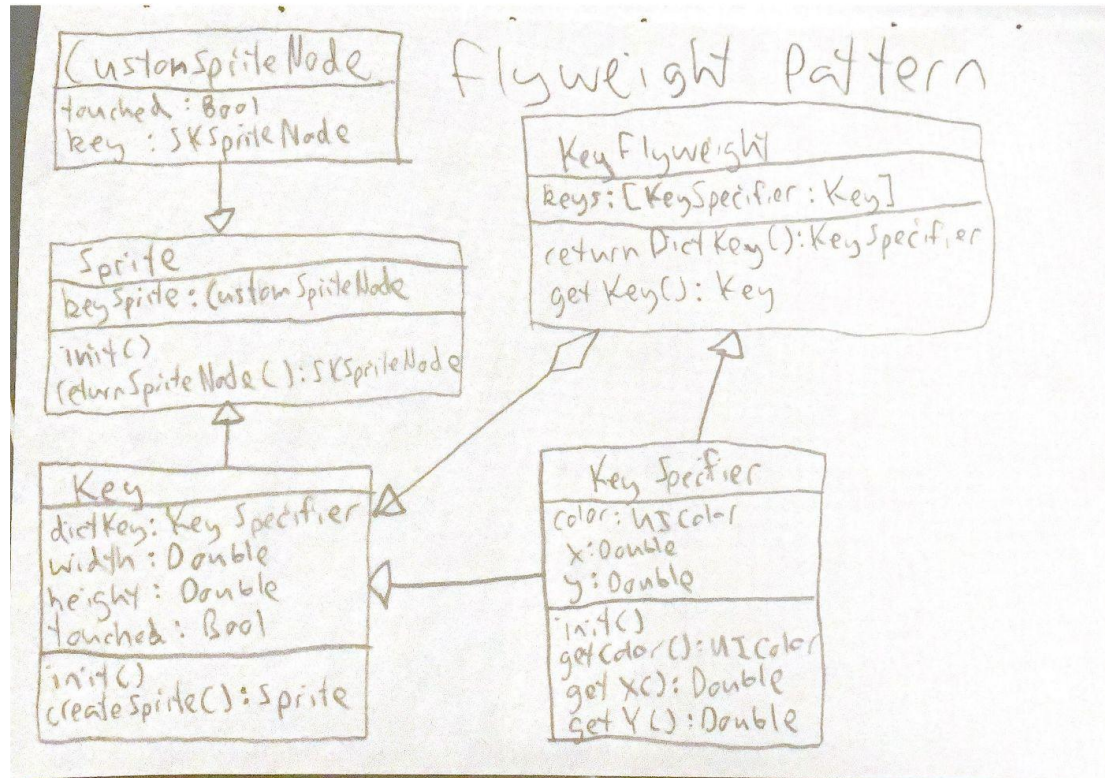 Flyweight Pattern
CustomSpriteNode
touched : Bool
key : SKSpriteNode
Sprite
keySprite : CustomSpriteNode
init()
returnSpriteNode() : SKSpriteNode
Key
dictKey : KeySpecifier
width : Double
height : Double
touched : Bool
init()
createSprite() : Sprite
KeyFlyweight
keys : [KeySpecifier : Key]
returnDictKey() : KeySpecifier
getKey() : Key
KeySpecifier
color : UIColor
x : Double
y : Double
init()
getColor() : UIColor
getX() : Double
getY() : Double